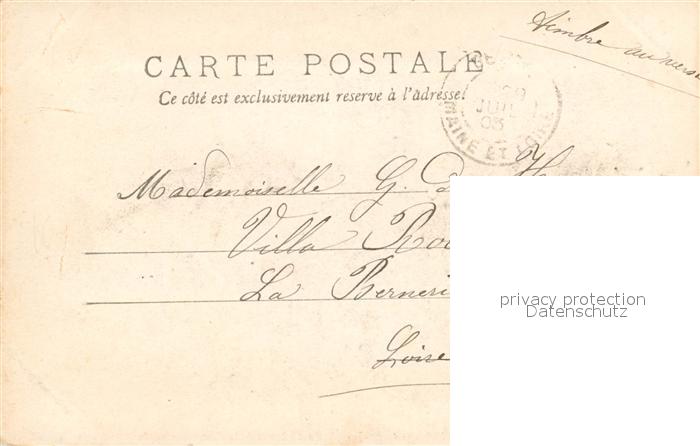 timbre au verso
CARTE POSTALE
Ce côté est exclusivement reserve à l'adresse!
29
JUIL
03
MAINE ET LOIRE
Mademoiselle G. D
Villa Ro
La Berneri
Loire
privacy protection
Datenschutz